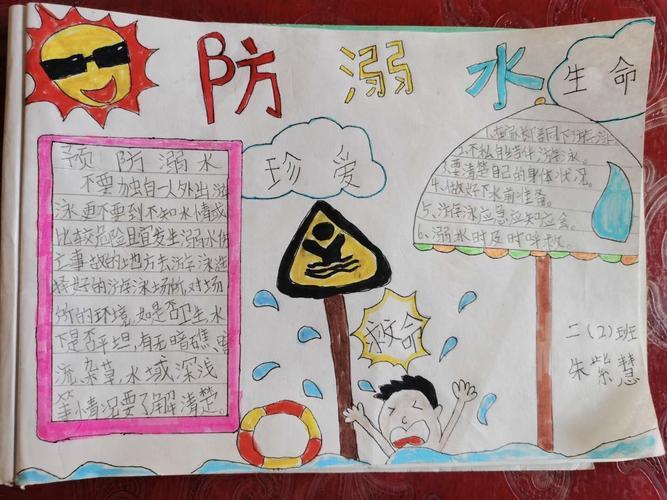 防溺水
珍爱
生命
预防溺水
不要独自一人外出游
泳,更不要到不知水情或
比较危险且宜发生溺水伤
亡事故的地方去游泳选
择好的游泳场所,对场
所的环境,如是否卫生,水
下是否平坦,有无暗礁、暗
流、杂草,水域深浅
等情况要了解清楚。
下游泳
2.不私自结伴游泳。
要清楚自己的身体状况。
4.做好下水前准备。
5、游泳应急应知应会。
6、溺水时及时呼救。
救命
二(2)班
朱紫慧